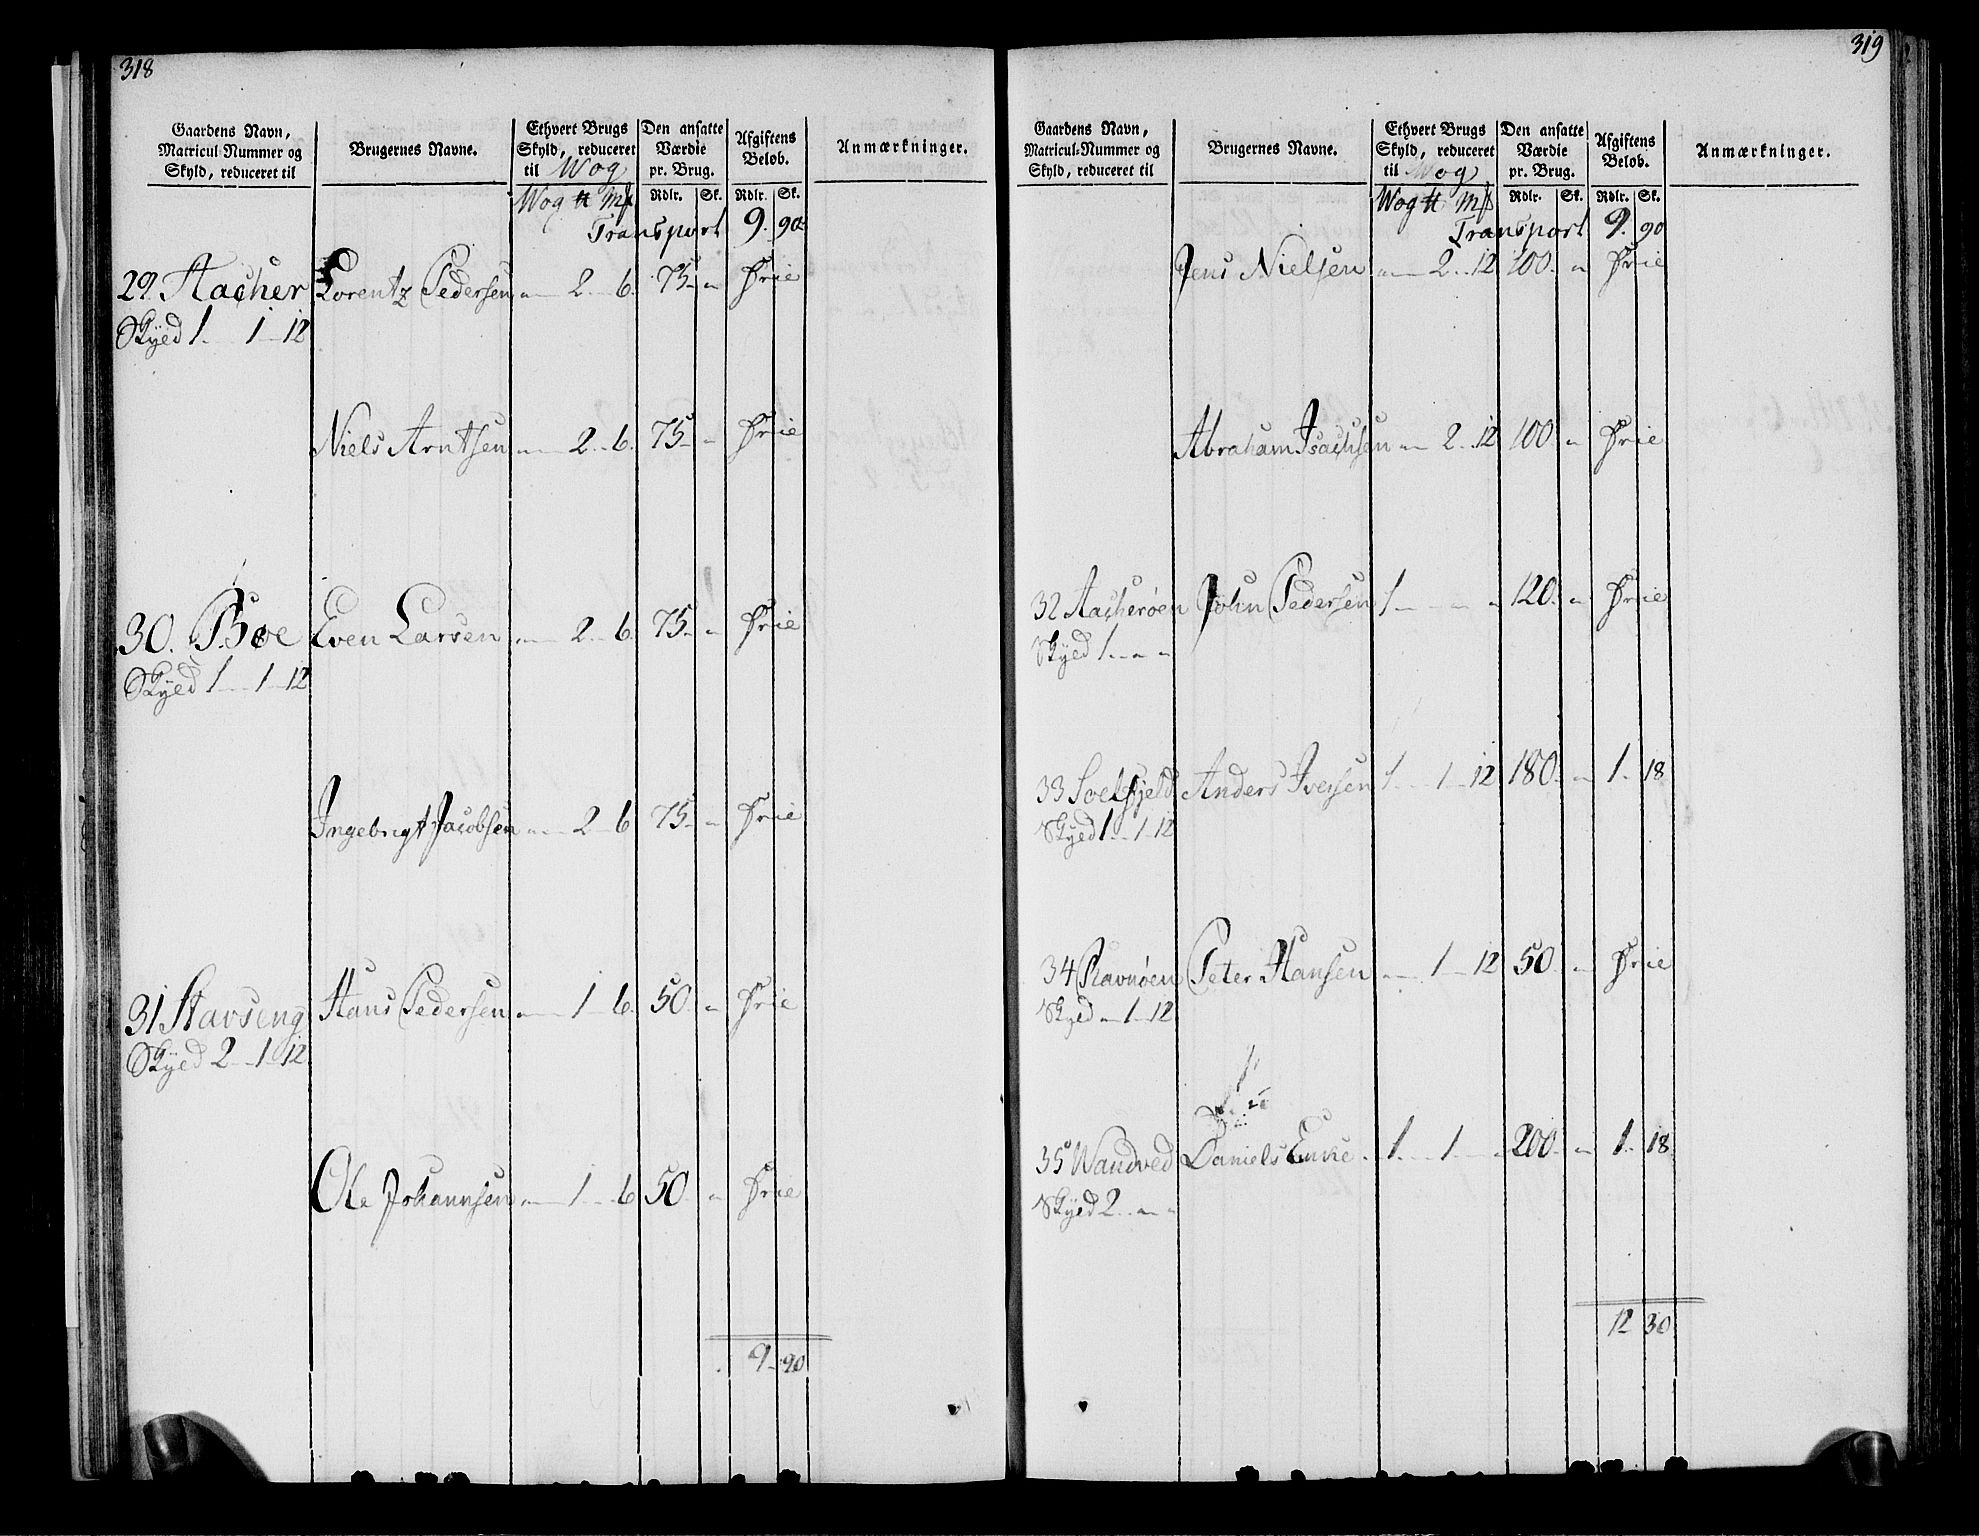 318
Gaardens Navn, Matricul-Nummer og Skyld, reduceret til
Brugernes Navne.
Ethvert Brugs Skyld, reduceret til Wog
Den ansatte Værdie pr. Brug.
Afgiftens Beløb.
Anmærkninger.
Wog ℔ Mk Rdlr. Sk. Rdlr. Sk.
Transport 9. 90
29. Aacher Lorentz Pedersen „ 2 6 75 „ Frie
Skyed 1 1 12
Niels Arntsen „ 2 6 75 „ Frie
30. Böe Even Larsen „ 2 6 75 „ Frie
Skyed 1 1 12
Ingebrigt Jacobsen „ 2 6 75 „ Frie
31 Stavseng Hans Pedersen „ 1 6 50 „ Frie
Skyed 2 1 12
Ole Johannsen „ 1 6 50 „ Frie
9 90
319
Gaardens Navn, Matricul-Nummer og Skyld, reduceret til
Brugernes Navne.
Ethvert Brugs Skyld, reduceret til Wog
Den ansatte Værdie pr. Brug.
Afgiftens Beløb.
Anmærkninger.
Wog ℔ Mk Rdlr. Sk. Rdlr. Sk.
Transport 9. 90
Jens Nielsen „ 2 12 100 „ Frie
Abraham Isachsen „ 2 12 100 „ Frie
32 Aacherøen John Pedersen 1 „ „ 120 „ Frie
Skyed 1 „ „
33 Soelfjeld Anders Iversen 1 1 12 180 „ 1 18
Skyed 1 1 12
34 Ravnøen Peter Hansen „ 1 12 50 „ Frie
Skyed „ 1 12
35 Wandved Daniels Enke 1 1 „ 200 „ 1 18
Skyed 2 „ „
12 30